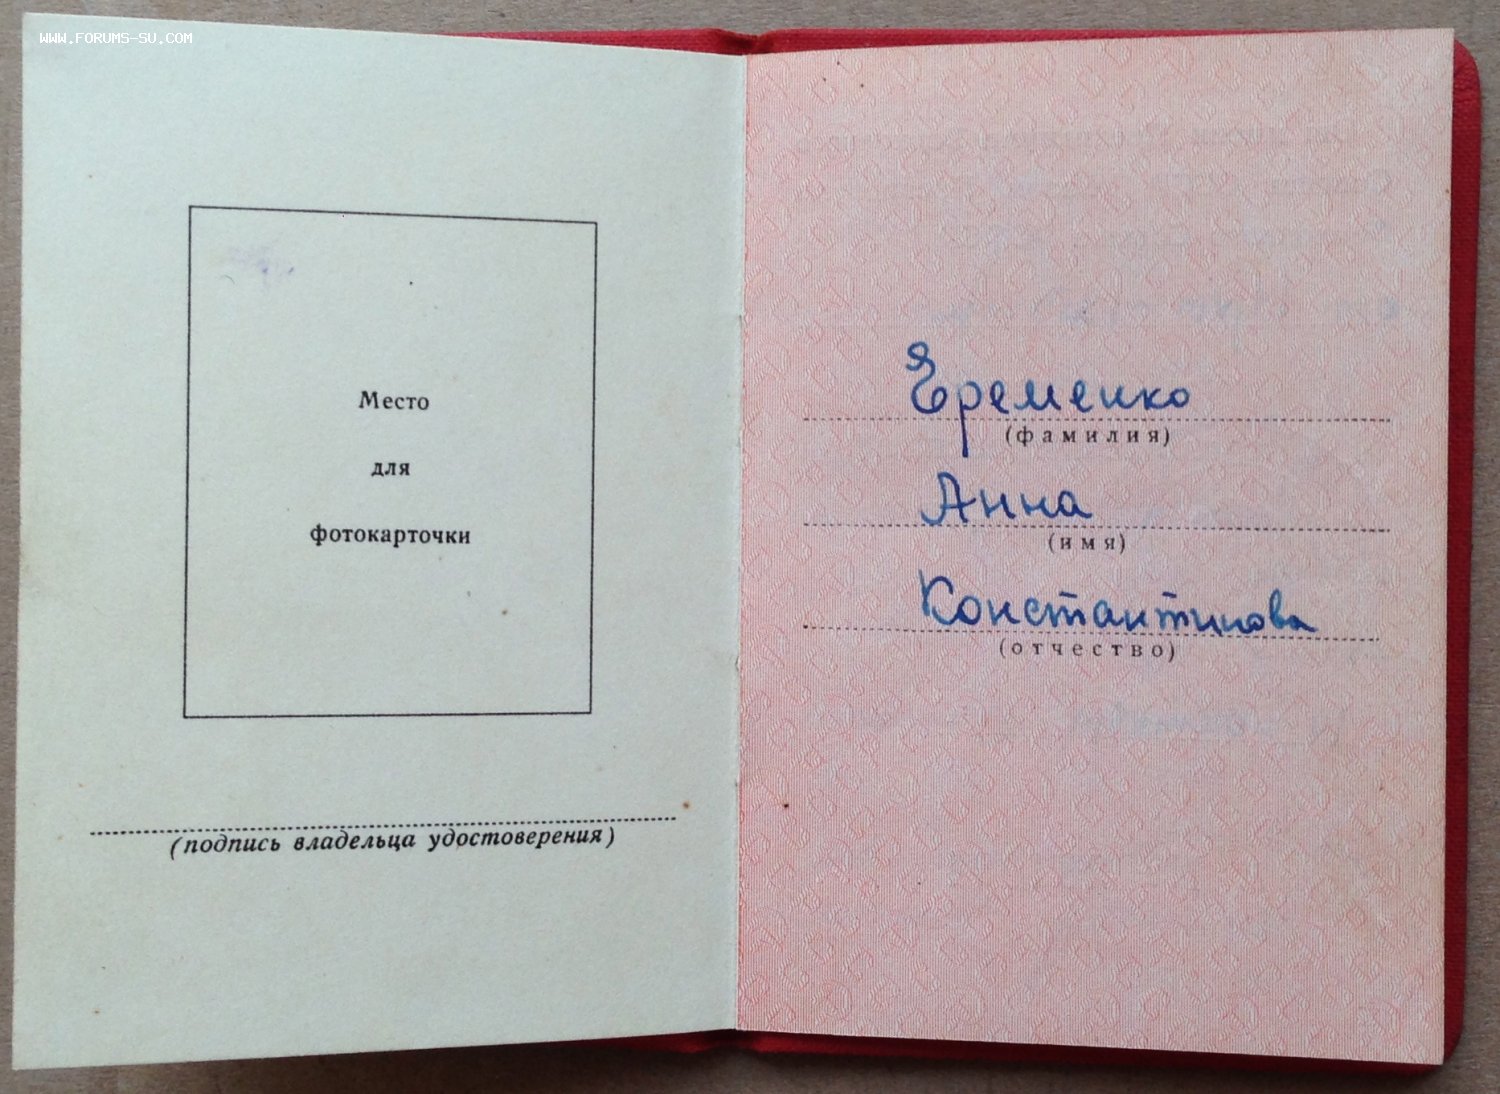 WWW.FORUMS-SU.COM
Место
для
фотокарточки
(подпись владельца удостоверения)
Еременко
(фамилия)
Анна
(имя)
Константинова
(отчество)